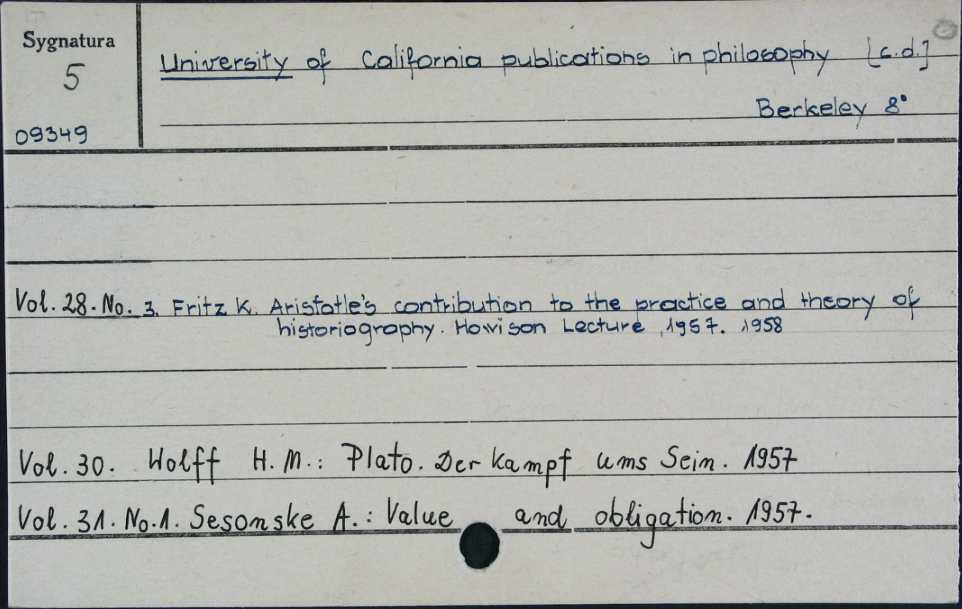 Sygnatura
5
09349
University of California publications in philosophy [c.d.]
Berkeley 8°
Vol. 28. No. 3. Fritz K. Aristotle's contribution to the practice and theory of
historiography. Howison Lecture, 1957. 1958
Vol. 30. Wolff H. M.: Plato. Der Kampf ums Sein. 1957
Vol. 31. No. 1. Sesonske A.: Value and obligation. 1957.